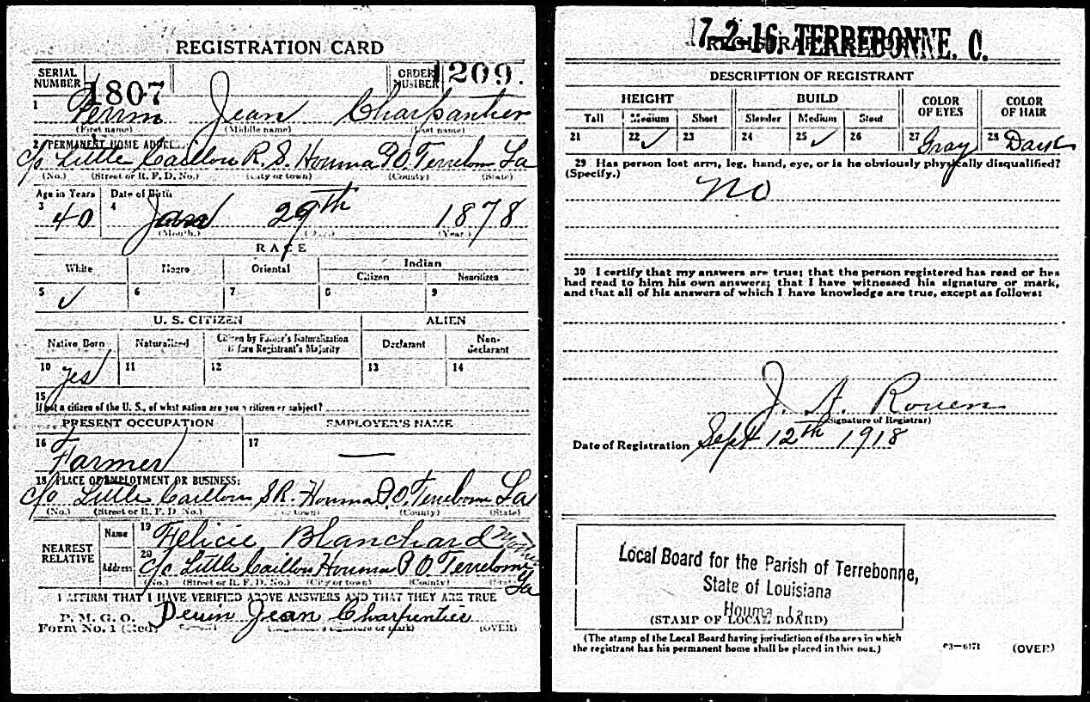 REGISTRATION CARD
SERIAL NUMBER 1807 ORDER NUMBER 1209.
1 Perrin Jean Charpantier
(First name) (Middle name) (Last name)
2 PERMANENT HOME ADDRESS:
c/o Little Caillou R. S. Houma P.O. Terrebon La
(No.) (Street or R. F. D. No.) (City or town) (County) (State)
Age in Years Date of Birth
3 40 4 Jan 29th 1878
(Month.) (Day.) (Year.)
RACE
White Negro Oriental Indian
Citizen Noncitizen
5 ✓ 6 7 8 9
U. S. CITIZEN ALIEN
Native Born Naturalized Citizen by Father's Naturalization Before Registrant's Majority Declarant Non-declarant
10 yes 11 12 13 14
15
If not a citizen of the U. S., of what nation are you a citizen or subject?
PRESENT OCCUPATION EMPLOYER'S NAME
16 Farmer 17 —
18 PLACE OF EMPLOYMENT OR BUSINESS:
c/o Little Caillou S R. Houma P.O. Terrebon La
(No.) (Street or R. F. D. No.) (City or town) (County) (State)
NEAREST RELATIVE
Name 19 Felicie Blanchard Mother
Address 20 c/o Little Caillou Houma P O. Terrebon La
(No.) (Street or R. F. D. No.) (City or town) (County) (State)
I AFFIRM THAT I HAVE VERIFIED ABOVE ANSWERS AND THAT THEY ARE TRUE
P. M. G. O.
Form No. 1 (Red) Perrin Jean Charpentier
(Registrant's signature or mark) (OVER)
17-2-16. TERREBONNE. C.
REGISTRAR'S REPORT
DESCRIPTION OF REGISTRANT
HEIGHT BUILD COLOR OF EYES COLOR OF HAIR
Tall Medium Short Slender Medium Stout
21 22 ✓ 23 24 25 ✓ 26 27 Gray 28 Dark
29 Has person lost arm, leg, hand, eye, or is he obviously physically disqualified?
(Specify.)
No
30 I certify that my answers are true; that the person registered has read or has
had read to him his own answers; that I have witnessed his signature or mark,
and that all of his answers of which I have knowledge are true, except as follows:
J. A. Rouen
(Signature of Registrar)
Date of Registration Sept 12th 1918
Local Board for the Parish of Terrebonne,
State of Louisiana
Houma La.
(STAMP OF LOCAL BOARD)
(The stamp of the Local Board having jurisdiction of the area in which
the registrant has his permanent home shall be placed in this box.)
03—6171 (OVER)